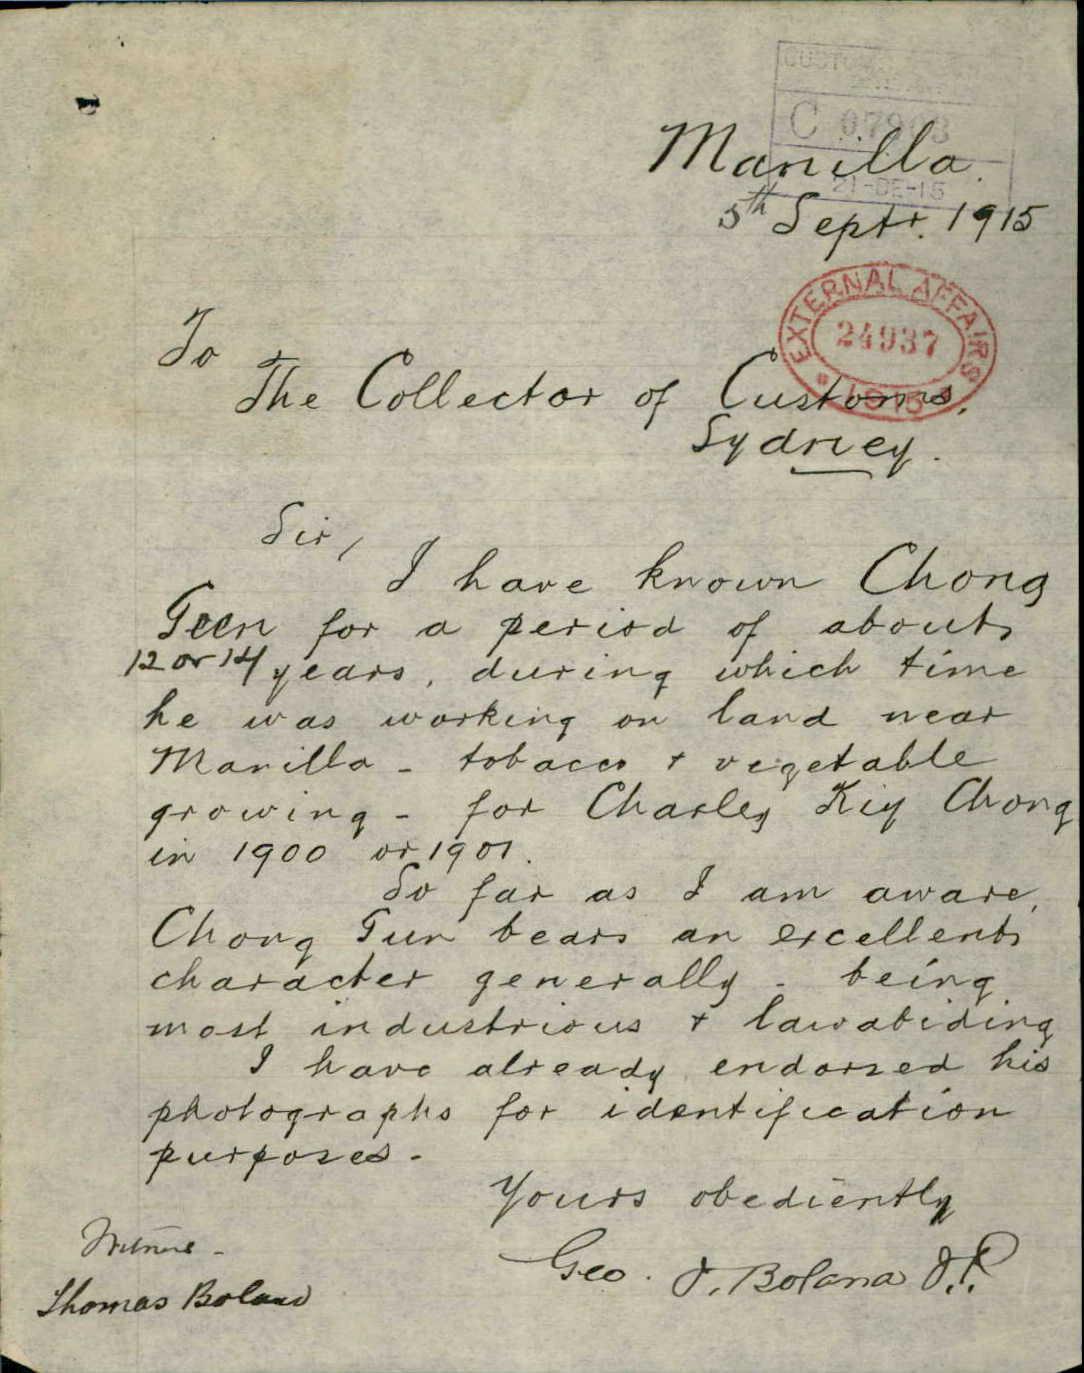 CUSTOMS
C 07903
21-DE-15
Manilla.
5th Septr. 1915
EXTERNAL AFFAIRS
24937
1915
To
The Collector of Customs,
Sydney.
Sir,
I have known Chong
Geen for a period of about
12 or 14 years, during which time
he was working on land near
Manilla - tobacco + vegetable
growing - for Charley Kiy Chong
in 1900 or 1901.
So far as I am aware,
Chong Gun bears an excellent
character generally - being
most industrious + lawabiding
I have already endorsed his
photographs for identification
purposes -
Yours obediently
Geo. J. Boland J.P.
Witness -
Thomas Boland